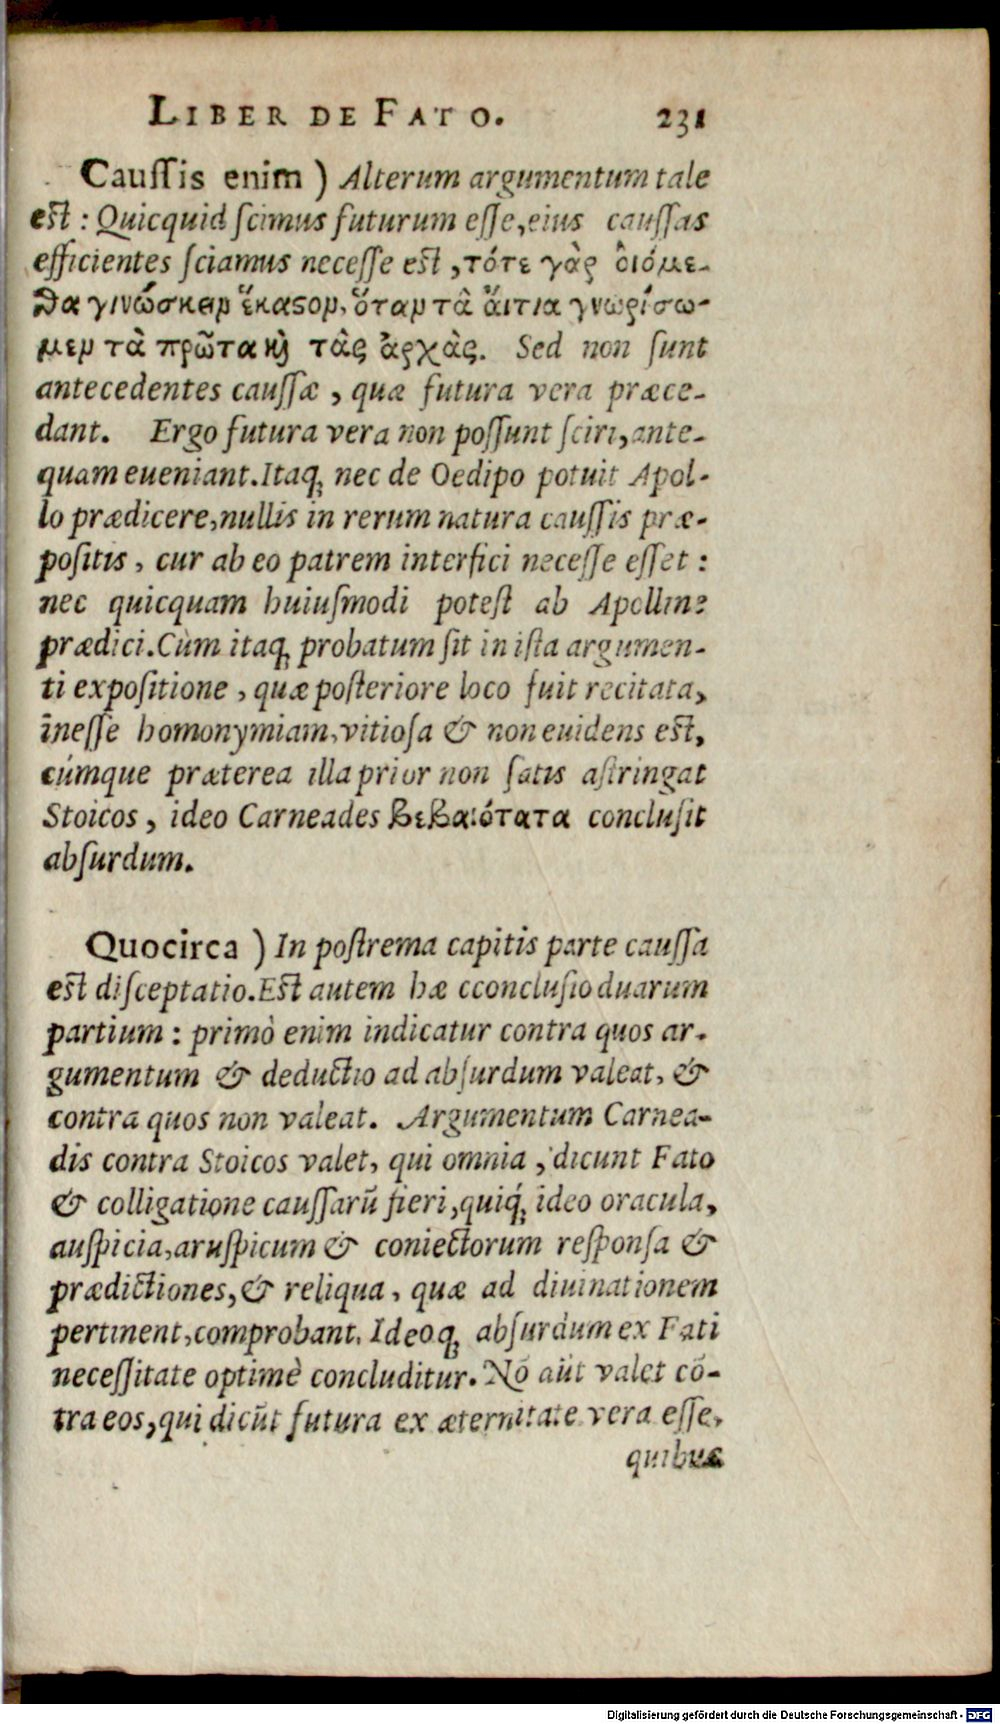 LIBER DE FATO. 231
Cauſſis enim ) Alterum argumentum tale
eſt : Quicquid ſcimus futurum eſſe, eius cauſſas
efficientes ſciamus neceſſe eſt , τότε γὰρ ὀιόμε-
θα γινώσκειν ἕκαϛον, ὅταν τὰ ἄιτια γνωρίσω-
μεν τὰ πρῶτα κ̀ τὰς ἀρχὰς. Sed non ſunt
antecedentes cauſſæ , quæ futura vera præce-
dant. Ergo futura vera non poſſunt ſciri, ante-
quam eueniant. Itaq; nec de Oedipo potuit Apol-
lo prædicere, nullis in rerum natura cauſſis præ-
poſitis , cur ab eo patrem interfici neceſſe eſſet :
nec quicquam huiuſmodi poteſt ab Apolline
prædici. Cùm itaq; probatum ſit in iſta argumen-
ti expoſitione , quæ poſteriore loco fuit recitata,
ineſſe homonymiam, vitioſa & non euidens eſt,
cúmque præterea illa prior non ſatis aſtringat
Stoicos , ideo Carneades βεβαιότατα concluſit
abſurdum.
Quocirca ) In poſtrema capitis parte cauſſa
eſt diſceptatio. Eſt autem hæ cconcluſio duarum
partium : primò enim indicatur contra quos ar-
gumentum & deductio ad abſurdum valeat, &
contra quos non valeat. Argumentum Carnea-
dis contra Stoicos valet, qui omnia , dicunt Fato
& colligatione cauſſarũ fieri, quiq́; ideo oracula,
auſpicia, aruſpicum & coniectorum reſponſa &
prædictiones, & reliqua , quæ ad diuinationem
pertinent, comprobant. Ideoq; abſurdum ex Fati
neceſſitate optimè concluditur. Nõ aũt valet cõ-
tra eos, qui dicũt futura ex æternitate vera eſſe,
quibus
Digitalisierung gefördert durch die Deutsche Forschungsgemeinschaft - DFG